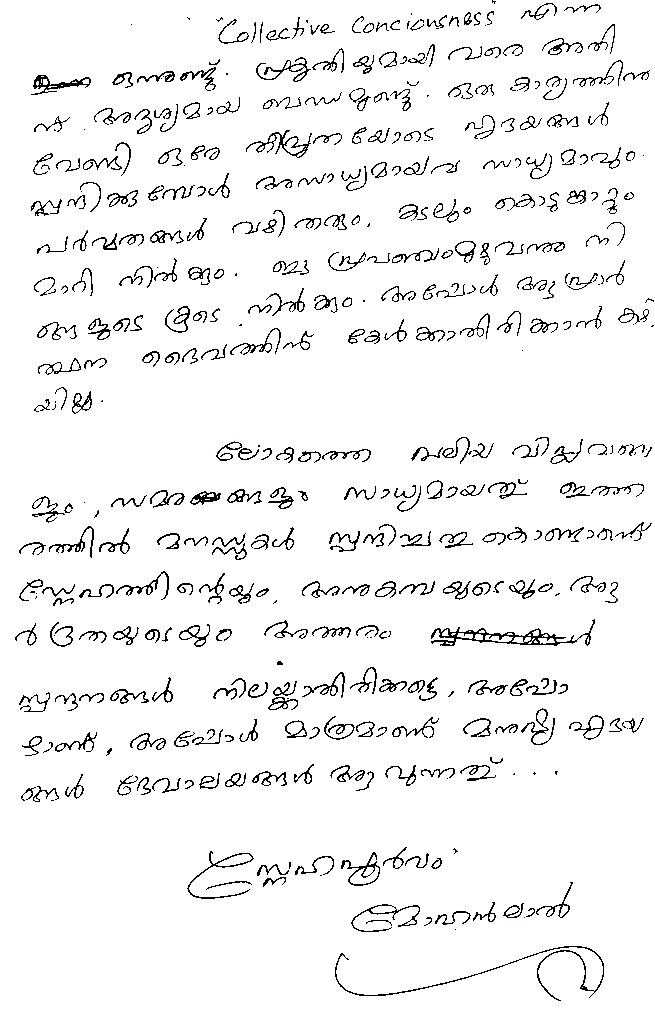 "Collective Conciousness" എന്ന
ഒന്നുണ്ട്. പ്രകൃതിയുമായി വരെ അതി
ന് അദൃശ്യമായ ബന്ധമുണ്ട്. ഒരു കാര്യത്തിനു
വേണ്ടി ഒരേ തീവ്രതയോടെ ഹൃദയങ്ങൾ
സ്പന്ദിക്കുമ്പോൾ അസാധ്യമായവ സാധ്യമാവും.
പർവ്വതങ്ങൾ വഴിതരും, കടലും കൊടുങ്കാറ്റും
മാറി നിൽക്കും. ഈ പ്രപഞ്ചംമുഴുവനും നി
ങ്ങളുടെ കൂടെ നിൽക്കും. അപ്പോൾ ആ പ്രാർ
ത്ഥന ദൈവത്തിന് കേൾക്കാതിരിക്കാൻ കഴി
യില്ല.
ലോകത്തെ വലിയ വിപ്ലവങ്ങ
ളും, സമരങ്ങളും സാധ്യമായത് ഇത്ത
രത്തിൽ മനസ്സുകൾ സ്പന്ദിച്ചതു കൊണ്ടാണ്
സ്നേഹത്തിന്റെയും, അനുകമ്പയുടെയും, ആ
ർദ്രതയുടെയും അത്തരം
സ്പന്ദനങ്ങൾ നിലയ്ക്കാതിരിക്കട്ടെ, അപ്പോ
ഴാണ്, അപ്പോൾ മാത്രമാണ് മനുഷ്യ ഹൃദയ
ങ്ങൾ ദേവാലയങ്ങൾ ആവുന്നത്...
സ്നേഹപൂർവം
മോഹൻലാൽ